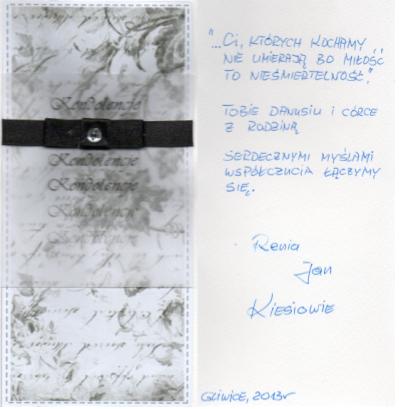 Kondolencje
Kondolencje
Kondolencje
Kondolencje
Kondolencje
Kondolencje
"...Ci, KTÓRYCH KOCHAMY
NIE UMIERAJĄ BO MIŁOŚĆ
TO NIEŚMIERTELNOŚĆ."
TOBIE DANUSIU i CÓRCE
Z RODZINĄ
SERDECZNYMI MYŚLAMI
WSPÓŁCZUCIA ŁĄCZYMY
SIĘ.
Renia
Jan
Kiesiowie
GLIWICE, 2013r